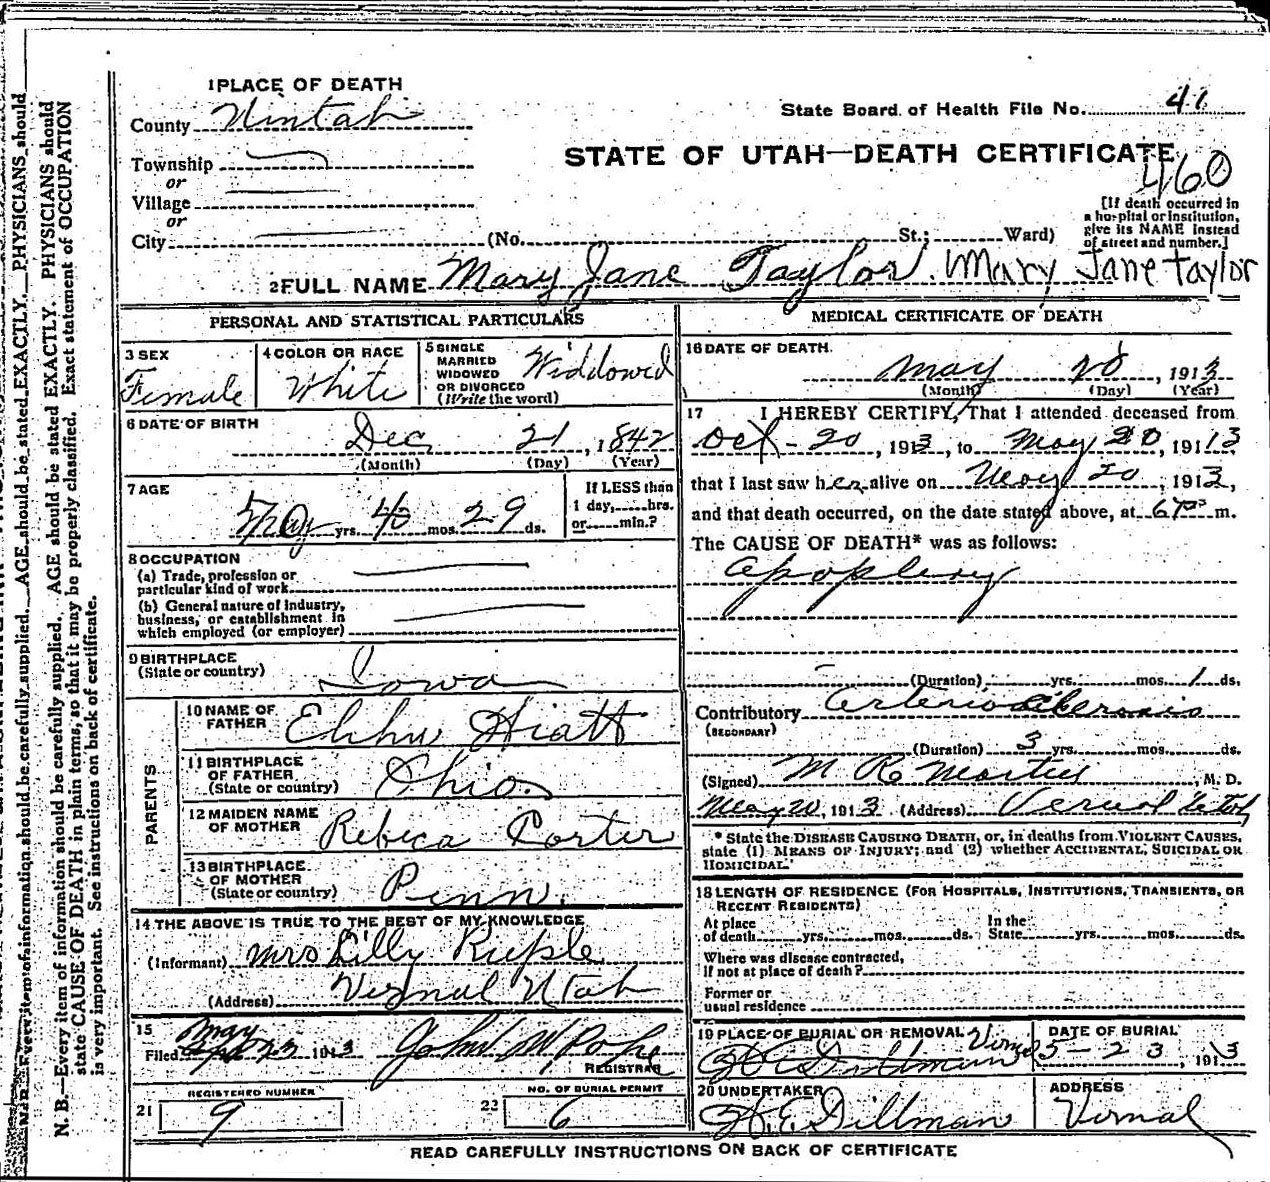 1 PLACE OF DEATH
County Uintah
State Board of Health File No. 41
Township
or
Village
or
City (No. St.; Ward)
STATE OF UTAH—DEATH CERTIFICATE
460
[If death occurred in
a hospital or institution,
give its NAME instead
of street and number.]
2 FULL NAME Mary Jane Taylor. Mary Jane Taylor
PERSONAL AND STATISTICAL PARTICULARS
3 SEX
Female
4 COLOR OR RACE
White
5 SINGLE
MARRIED
WIDOWED
OR DIVORCED
(Write the word)
Widdowed
6 DATE OF BIRTH
Dec 21, 1842
(Month) (Day) (Year)
7 AGE
yrs. mos. 29 ds.
If LESS than
1 day, hrs.
or min.?
8 OCCUPATION
(a) Trade, profession or
particular kind of work
(b) General nature of industry,
business, or establishment in
which employed (or employer)
9 BIRTHPLACE
(State or country)
Iowa
PARENTS
10 NAME OF
FATHER
Elihu Hiatt
11 BIRTHPLACE
OF FATHER
(State or country)
Ohio.
12 MAIDEN NAME
OF MOTHER
Rebeca Porter
13 BIRTHPLACE
OF MOTHER
(State or country)
Penn.
14 THE ABOVE IS TRUE TO THE BEST OF MY KNOWLEDGE
(Informant) Mrs Lilly Ruple
(Address) Vernal Utah
15
Filed May 23 1913 John W Pope
REGISTRAR
REGISTERED NUMBER
21 9
NO. OF BURIAL PERMIT
22 6
MEDICAL CERTIFICATE OF DEATH
16 DATE OF DEATH
May 20, 1913
(Month) (Day) (Year)
17 I HEREBY CERTIFY, That I attended deceased from
Oct - 20, 1913, to May 20, 1913
that I last saw her alive on May 20, 1913,
and that death occurred, on the date stated above, at m.
The CAUSE OF DEATH* was as follows:
Apoplexy
(Duration) yrs. mos. 1 ds.
Contributory Arteriosclerosis
(SECONDARY)
(Duration) 3 yrs. mos. ds.
(Signed) M. D.
May 20, 1913 (Address) Vernal Utah
* State the DISEASE CAUSING DEATH, or, in deaths from VIOLENT CAUSES,
state (1) MEANS OF INJURY; and (2) whether ACCIDENTAL, SUICIDAL OR
HOMICIDAL.
18 LENGTH OF RESIDENCE (FOR HOSPITALS, INSTITUTIONS, TRANSIENTS, OR
RECENT RESIDENTS)
At place
of death yrs. mos. ds.
In the
State yrs. mos. ds.
Where was disease contracted,
if not at place of death?
Former or
usual residence
19 PLACE OF BURIAL OR REMOVAL Vernal
DATE OF BURIAL
5-23, 1913
20 UNDERTAKER
H. E. Dillman
ADDRESS
Vernal
READ CAREFULLY INSTRUCTIONS ON BACK OF CERTIFICATE
N. B.—Every item of information should be carefully supplied. AGE should be stated EXACTLY. PHYSICIANS should
state CAUSE OF DEATH in plain terms, so that it may be properly classified. Exact statement of OCCUPATION
is very important. See instructions on back of certificate.